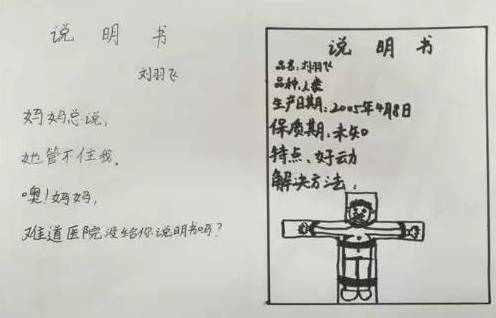 说明书
刘羽飞
妈妈总说，
她管不住我。
噢！妈妈，
难道医院没给你说明书吗？
说明书
品名：刘羽飞
品种：人类
生产日期：2005年4月8日
保质期：未知
特点：好动
解决方法：